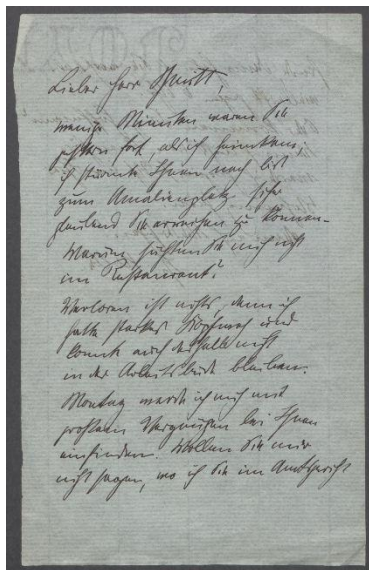 Lieber Herr
wenige Minuten waren Sie
gestern fort, als ich heimkam;
ich stürmte Ihnen nach bis
zum Amalienplatz, sehr
glaubend Sie erreichen zu können.
Warum suchten Sie mich nicht
im Restaurant?
Verloren ist nichts, denn ich
hatte starkes Kopfweh und
konnte auch deshalb nicht
in der Arbeitsbude bleiben.
Montag werde ich mich mit
großem Vergnügen bei Ihnen
einfinden. Wollen Sie mir
nicht sagen, wo ich Sie im Amtsgericht